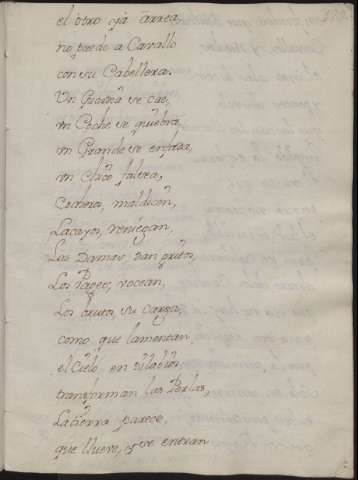 el otro ya arrea,
no puede a Cavallo
con su Cabellera.
Un Guarda se cae,
un Coche se quiebra,
un Grande se enfraa,
un chico
Cocheros, maldicen,
Lacayos, reniegan,
Las Damas, dan gritos,
Los Pages, vocean,
Los brutos, su carga,
como que lamentan,
el Cielo, en
transforman las Perlas,
La tierra parece,
que llueve, y se entran